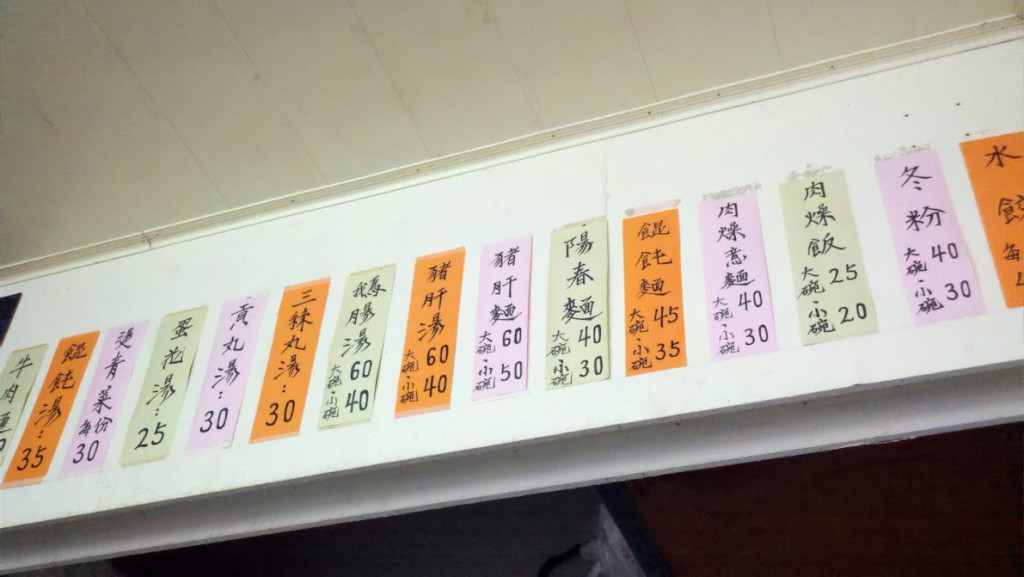 水餃 每
冬粉 大碗 40 小碗 30
肉燥飯 大碗 25 小碗 20
肉燥意麵 大碗 40 小碗 30
餛飩麵 大碗 45 小碗 35
陽春麵 大碗 40 小碗 30
豬肝麵 大碗 60 小碗 50
豬肝湯 大碗 60 小碗 40
鵝腸湯 大碗 60 小碗 40
三 丸湯：30
貢丸湯：30
蛋花湯：25
燙青菜 每份 30
餛飩湯：35
牛肉麵